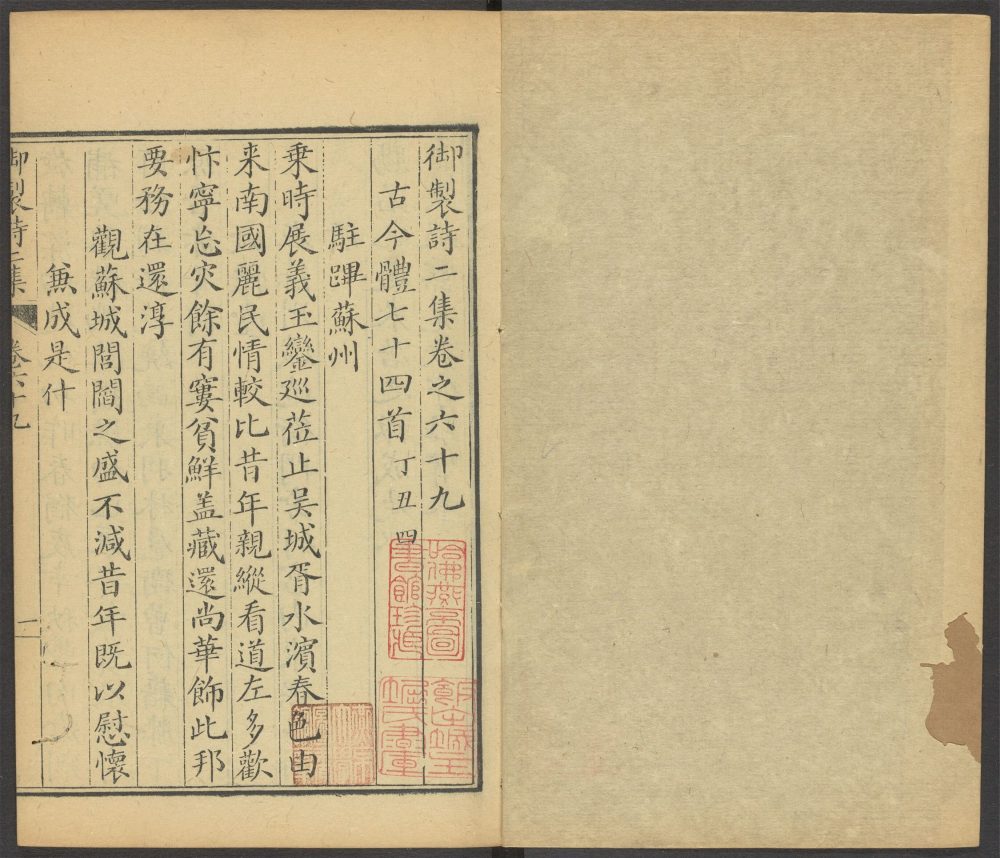 御製詩二集卷之六十九
古今體七十四首丁丑四
駐蹕蘇州
乗時展義玉鑾巡莅止吳城胥水濵春色由
来南國麗民情較比昔年親縱看道左多歡
忭寧忘灾餘有窶貧鮮盖藏還尚華飾此邦
要務在還淳
觀蘇城閭閻之盛不減昔年既以慰懷
兼成是什
御製詩二集
卷六十九
一
哈佛燕京圖
書館珍藏